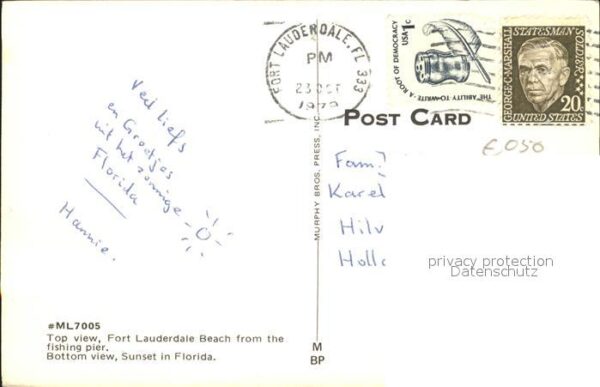 FORT LAUDERDALE, FL 333
PM
23 OCT
1979
USA 1c
THE ABILITY TO WRITE · A ROOT OF DEMOCRACY
GEORGE·C·MARSHALL
STATESMAN
SOLDIER
20c
UNITED STATES
POST CARD
€0,50
Veel liefs
en Groetjes
uit het zonnige
Florida
Hannie.
MURPHY BROS. PRESS, INC.
Fam.
Karel
Hilv
Holl
privacy protection
Datenschutz
#ML7005
Top view, Fort Lauderdale Beach from the
fishing pier.
Bottom view, Sunset in Florida.
M
BP